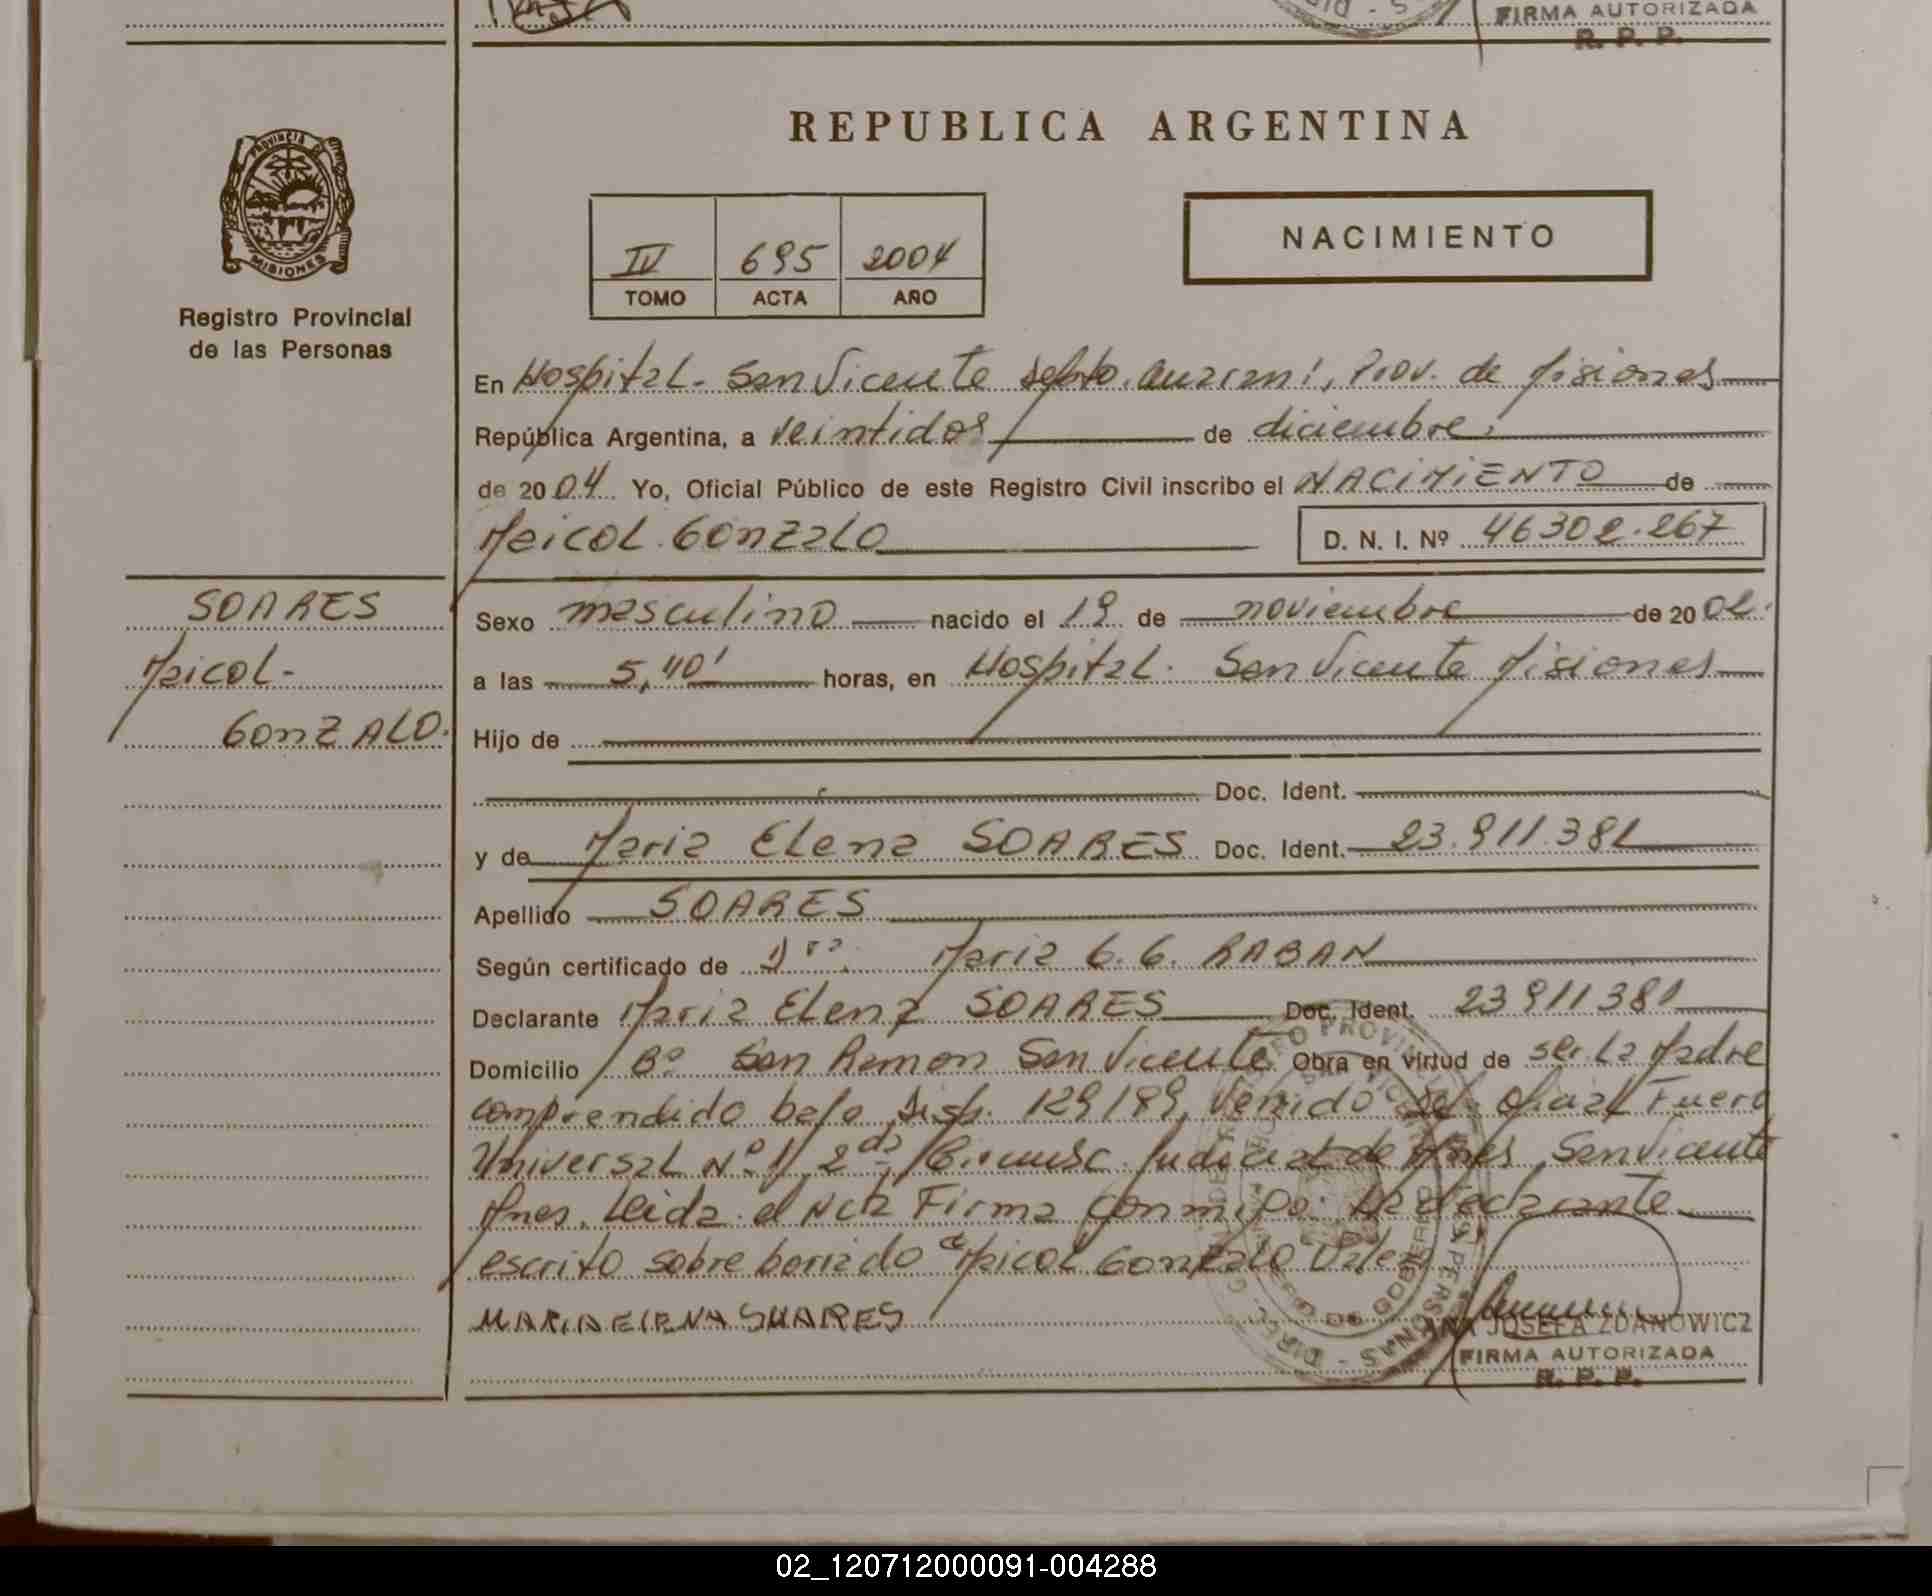 FIRMA AUTORIZADA
R. P. P.
PROVINCIA DE
MISIONES
Registro Provincial
de las Personas
REPUBLICA ARGENTINA
IV 695 2004
TOMO ACTA AÑO
NACIMIENTO
En Hospital - San Vicente Depto. Guarani, Prov. de Misiones
República Argentina, a veintidos de diciembre
de 2004 Yo, Oficial Público de este Registro Civil inscribo el NACIMIENTO de
Maicol Gonzalo D. N. I. Nº 46302.267
SOARES
Maicol -
GonZALO.
Sexo masculino nacido el 19 de noviembre de 2004.
a las 5,40' horas, en Hospital. San Vicente Misiones
Hijo de
Doc. Ident.
y de Maria Elena SOARES Doc. Ident. 23.911.381
Apellido SOARES
Según certificado de Dra. Maria G. G. RABAN
Declarante Maria Elena SOARES Doc. Ident. 23911381
Domicilio Bº San Ramon San Vicente Obra en virtud de ser la Madre
comprendido bajo Disp. 129/89, Venido del Oficial Fuero
Universal Nº 1 / 2da Circunsc. Judicial de Mnes San Vicente
Mnes. Leida el Acta Firma con migo: La declarante
escrito sobre borrado Maicol Gonzalo Vale
MARIA ELENA SUARES
ANA JOSEFA ZDANOWICZ
FIRMA AUTORIZADA
R. P. P.
02_120712000091-004288